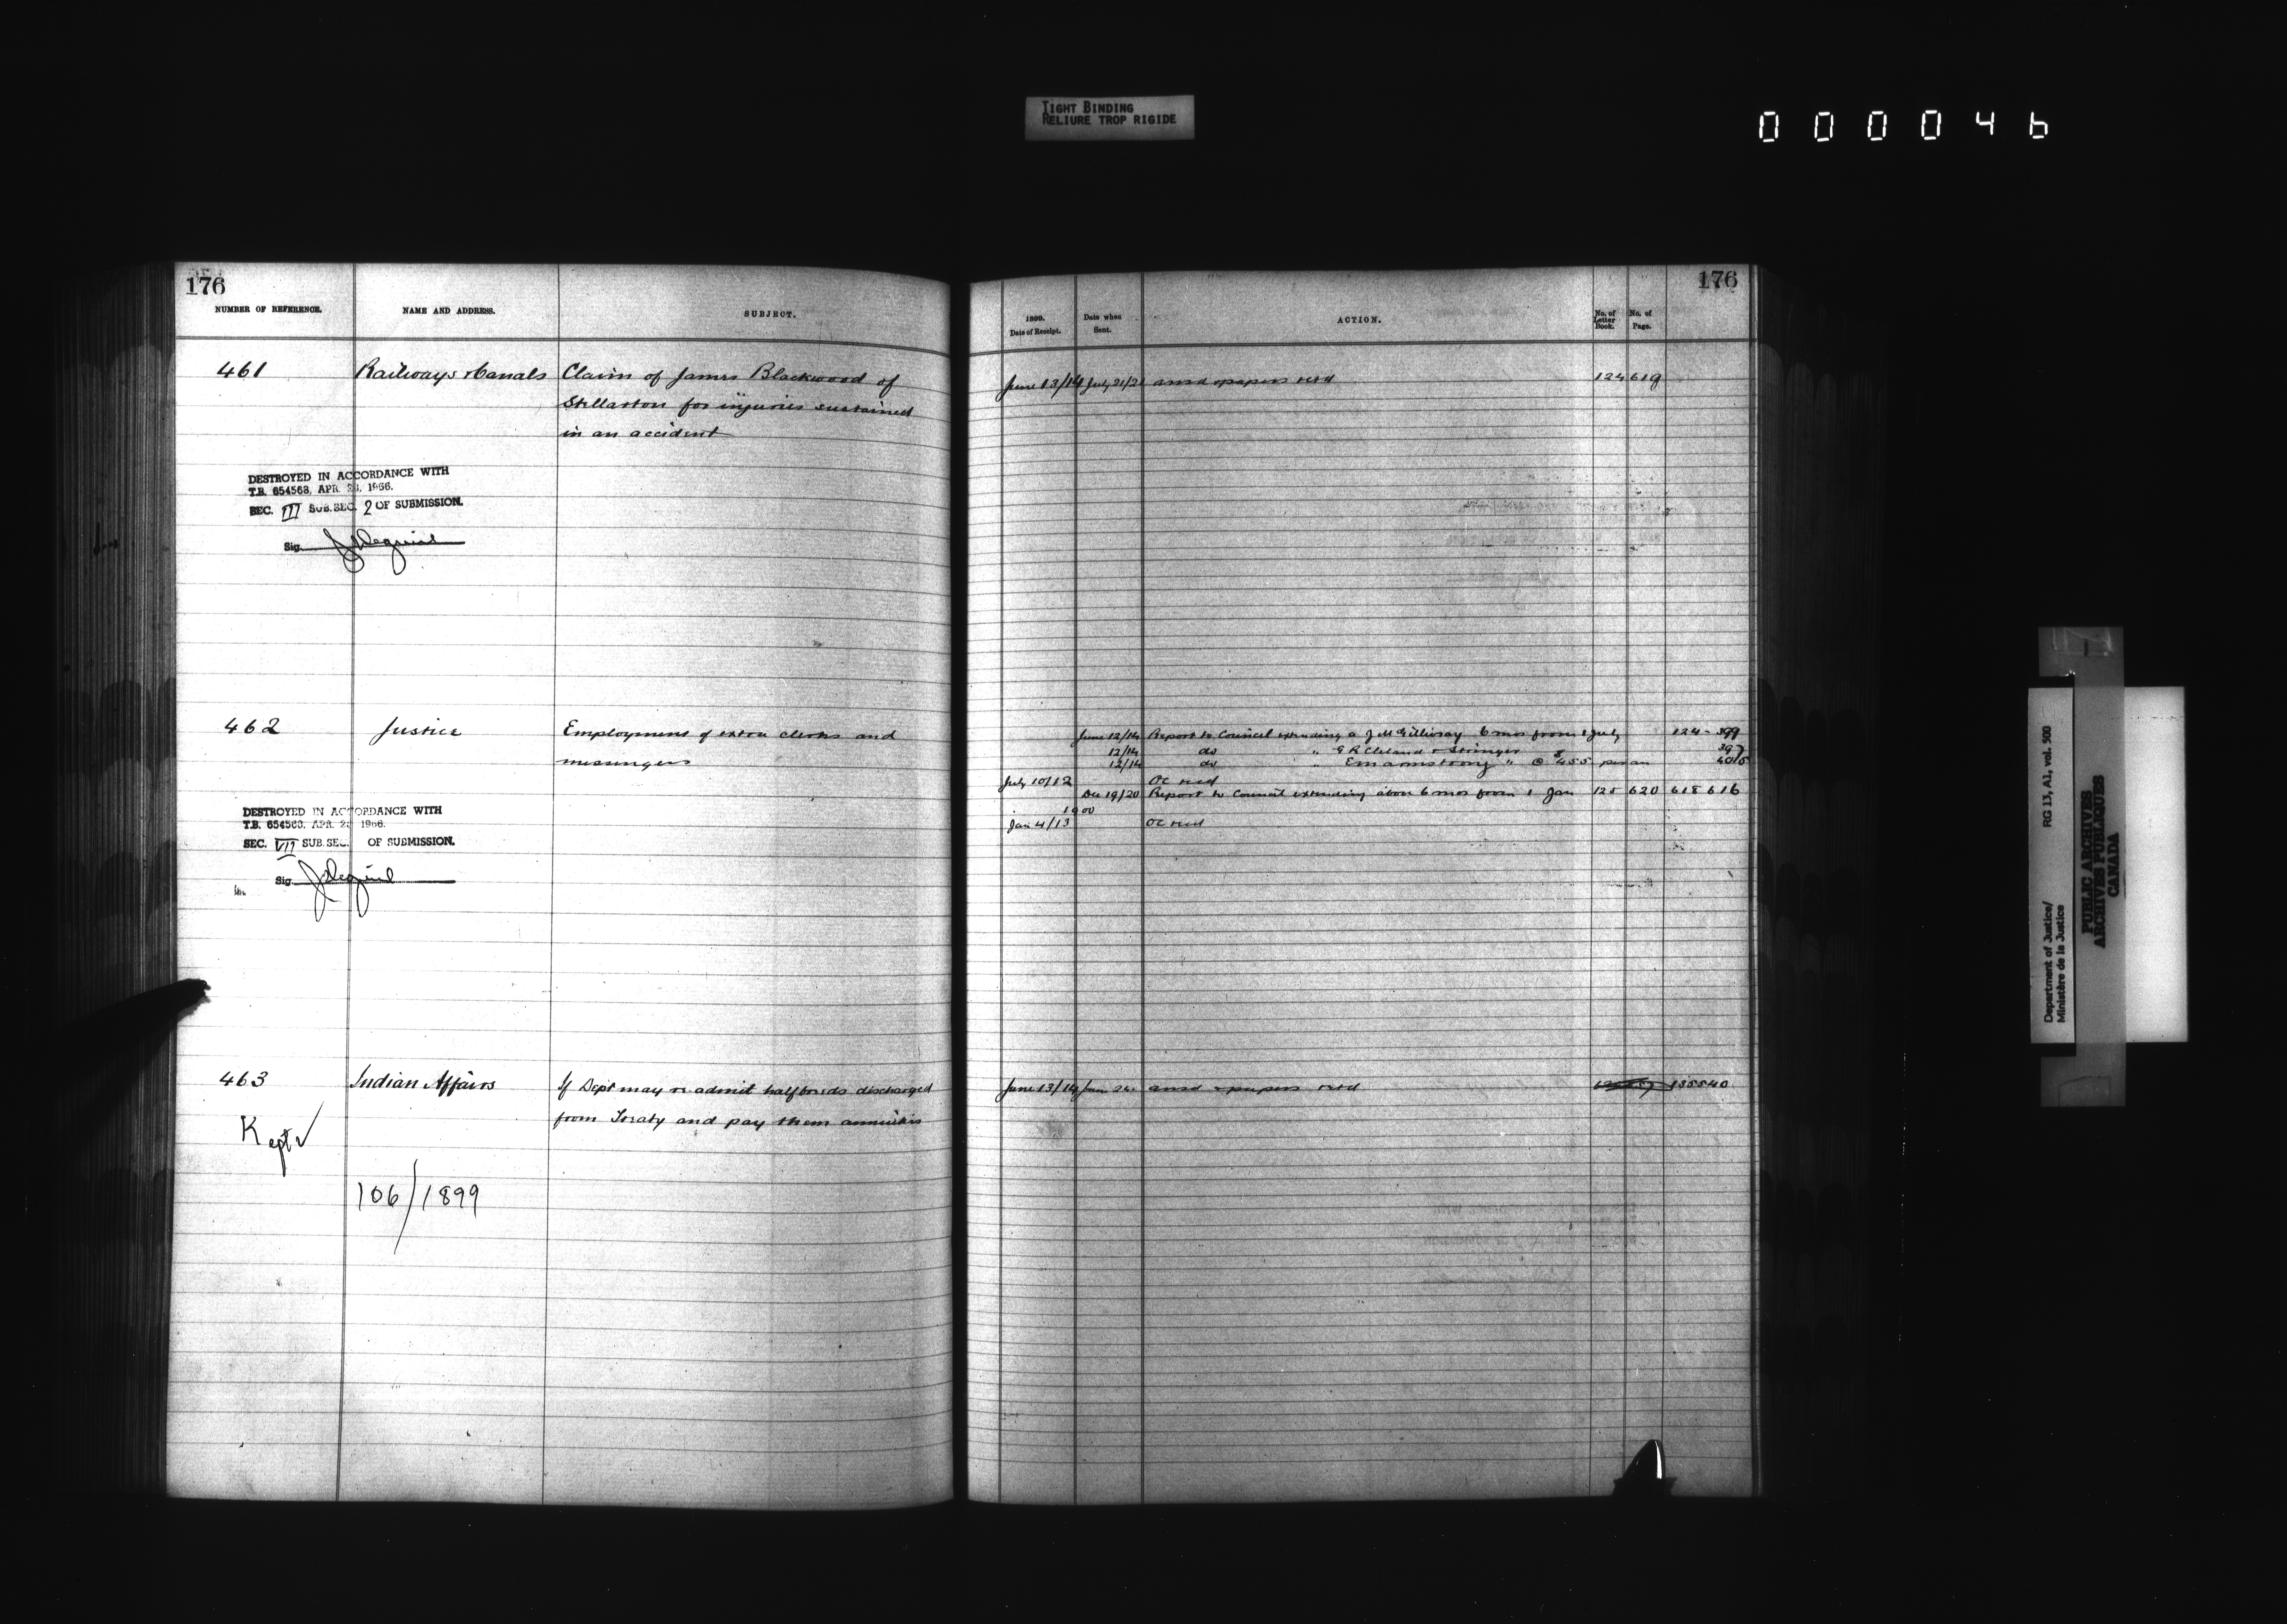 TIGHT BINDING
RELIURE TROP RIGIDE
000046
176
NUMBER OF REFERENCE.
NAME AND ADDRESS.
SUBJECT.
461
Railways & Canals
Claim of James Blackwood of
Stellarton for injuries sustained
in an accident
DESTROYED IN ACCORDANCE WITH
T.B. 654563, APR. 28, 1966.
SEC. III SUB.SEC. 2 OF SUBMISSION.
Sig.
462
Justice
Employment of extra clerks and
messengers
DESTROYED IN ACCORDANCE WITH
T.B. 654563, APR. 28, 1966.
SEC. VII SUB.SEC. OF SUBMISSION.
Sig.
463
Indian Affairs
If Dept may re admit halfbreeds discharged
from Treaty and pay them annuities
Kept
106/1899
176
1899.
Date of Receipt.
Date when
Sent.
ACTION.
No. of
Letter
Book.
No. of
Page.
June 13/14 July 21/21 ansd & papers retd 124 619
June 12/14 Report to Council extending a J McGillivray 6 mos from 1 July 124 - 399
12/14 do " G R Cleland & Stringer 397
12/14 do " E M Armstrong " @ 455 per an
July 10/12 OC recd
Dec 19/20 Report to Council extending above 6 mos from 1 Jan 125 620 618 616
1900
Jan 4/13 OC recd
June 13/14 June 24 ansd & papers retd 135540
Department of Justice/
Ministère de la Justice
RG 13, A1, vol. 500
PUBLIC ARCHIVES
ARCHIVES PUBLIQUES
CANADA